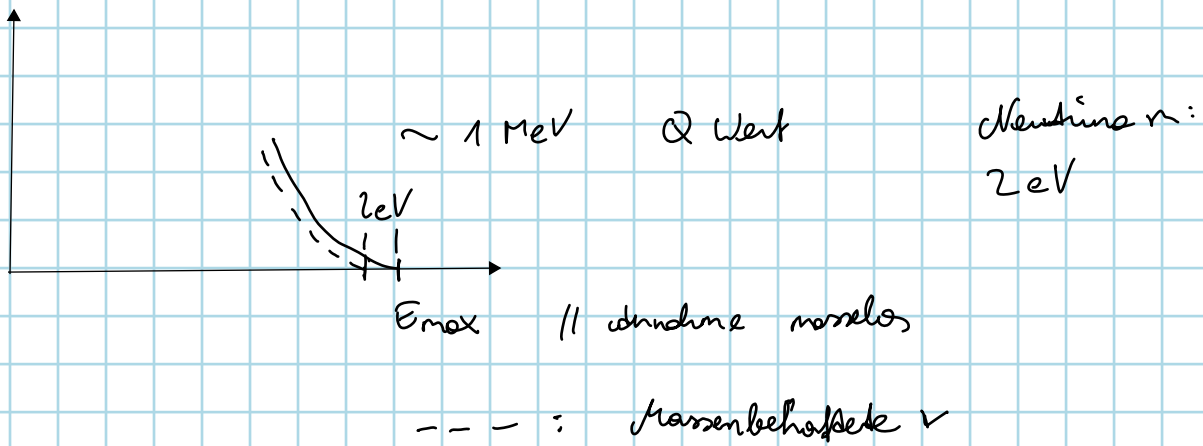 ~ 1 MeV Q Wert
Neutrino m:
2eV
2eV
Emax // Annahme masselos
--- : Massenbehaftete ν